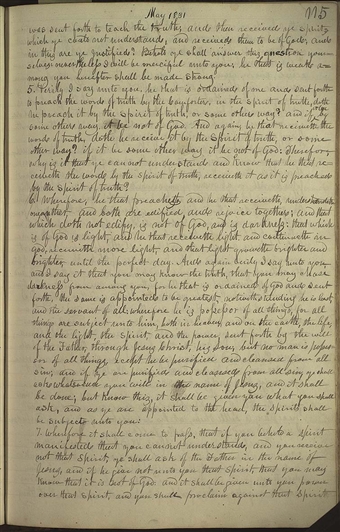 May 1831
115
was sent forth to teach the truth, and then received ye spirits
which ye could not understand, and received them to be of God, and
in this are ye justified? Behold ye shall answer this question your
selves nevertheless I will be merciful unto you; he that is weak a-
mong you hereafter shall be made strong.
5. Verily I say unto you, he that is ordained of me and sent forth
to preach the word of truth by the comforter, in the spirit of truth, doth
he preach it by the spirit of truth, or some other way? and if by
some other way, it be not of God. And again he that receiveth the
word of truth, doth he receive it by the spirit of truth, or some
other way? if it be some other way it be not of God: therefore
why is it that ye cannot understand and know that he that re-
ceiveth the word by the spirit of truth, receiveth it as it is preached
by the spirit of truth?
6. Wherefore, he that preacheth and he that receiveth, understandeth
one another and both are edified, and rejoice together; and that
which doth not edify, is not of God, and is darkness: that which
is of God is light, and he that receiveth light and continueth in
God, receiveth more light, and that light groweth brighter and
brighter until the perfect day. And again verily I say unto you
and I say it that you may know the truth, that you may chase
darkness from among you, for he that is ordained of God and sent
forth, the same is appointed to be greatest, notwithstanding he is least,
and the servant of all: wherefore he is possessor of all things, for all
things are subject unto him, both in heaven and on the earth, the life,
and the light, the spirit, and the power, sent forth by the will
of the Father, through Jesus Christ, his son; but no man is posses-
sor of all things, except he be purified and cleansed from all
sin; and if ye are purified and cleansed from all sin, ye shall
ask whatsoever you will in the name of Jesus, and it shall
be done; but know this, it shall be given you what you shall
ask, and as ye are appointed to the head, the spirits shall
be subject unto you.
7. Wherefore it shall come to pass, that if you behold a spirit
manifested that you cannot understand, and you receive
not that spirit, ye shall ask of the Father in the name of
Jesus, and if he give not unto you that spirit, that you may
know that it is not of God: and it shall be given unto you power
over that spirit, and you shall proclaim against that spirit